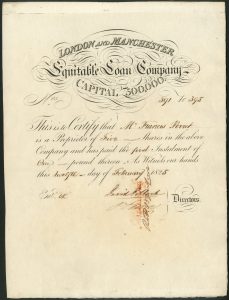 LONDON AND MANCHESTER
Equitable Loan Company
CAPITAL £300,000
No. 391 to 395
This is to Certify that Mr Francis
is a Proprietor of Five Shares in the above
Company and has paid the first Instalment of
One pound thereon As Witness our hands
this Twelfth day of February 1825
Entd
David Pollock
Directors